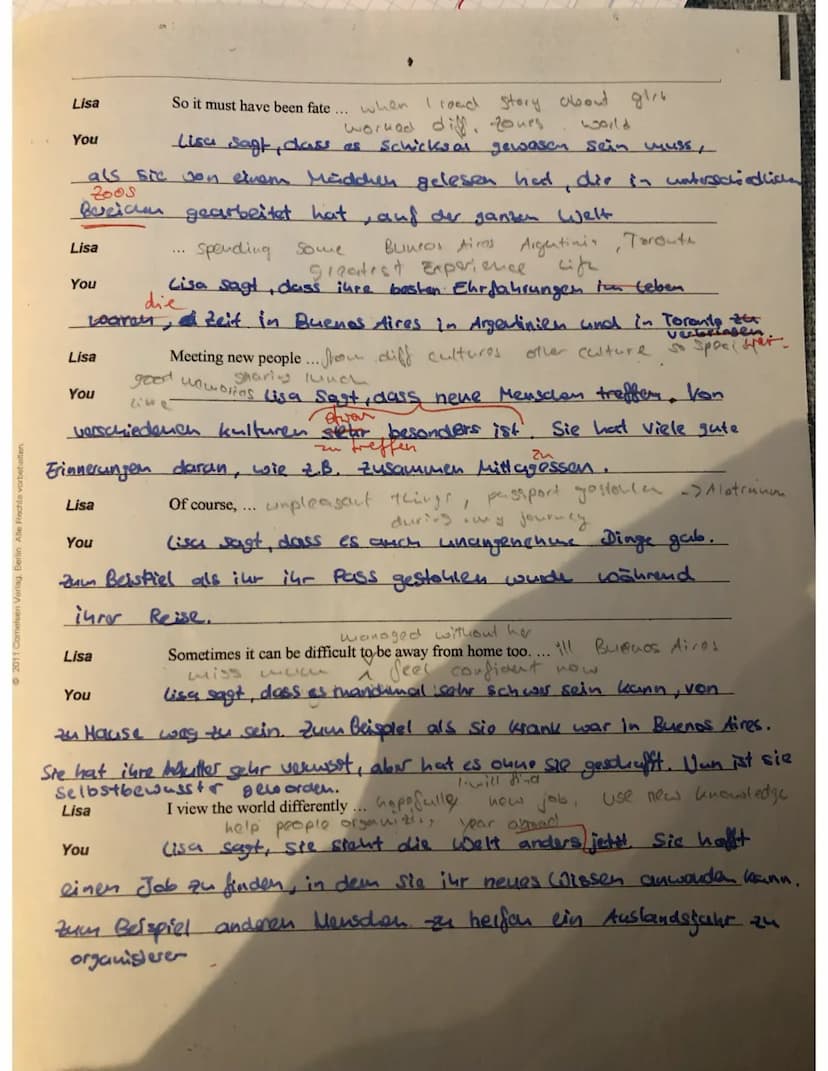 Lisa So it must have been fate ... when I read story about girl
worked diff. zones . world
You Lisa sagt, dass es Schicksal gewesen sein muss,
als sie von einem Mädchen gelesen hat, die in unterschiedlichen
Zoos
Bereichen gearbeitet hat, auf der ganzen Welt
Lisa ... spending some Buenos Aires Argentinia, Toronto
greatest Experience life
You Lisa sagt, dass ihre besten Ehrfahrungen im Leben
die
waren, Zeit in Buenos Aires in Argentinien und in Toronto zu
verbringen.
Lisa Meeting new people ... from diff cultures other culture so special
good sharing lunch
You Lisa sagt, dass neue Menschen treffen. Von
etwas
verschiedenen kulturen sehr besonders ist. Sie hat viele gute
zu treffen zu
Erinnerungen daran, wie z.B. zusammen Mittagessen.
Lisa Of course, ... unpleasant things, passport gestohlen ->
during my journey
You Lisa sagt, dass es auch unangenehme Dinge gab.
Zum Beispiel als ihr ihr Pass gestohlen wurde während
ihrer Reise.
managed without her
Lisa Sometimes it can be difficult to be away from home too. ... ill Buenos Aires
miss mum feel confident now
You Lisa sagt, dass es manchmal sehr schwer sein kann, von
zu Hause weg zu sein. Zum Beispiel als sie krank war in Buenos Aires.
Sie hat ihre Mutter sehr vermisst, aber hat es ohne sie geschafft. Nun ist sie
selbstbewusster geworden.
I will find
Lisa I view the world differently ... hopefully new job, use new knowledge
help people year abroad
You Lisa sagt, sie sieht die Welt anders jetzt. Sie hofft
einen Job zu finden, in dem sie ihr neues Wissen anwenden kann.
Zum Beispiel anderen Menschen zu helfen ein Auslandsjahr zu
organisieren
© 2011 Cornelsen Verlag, Berlin. Alle Rechte vorbehalten.